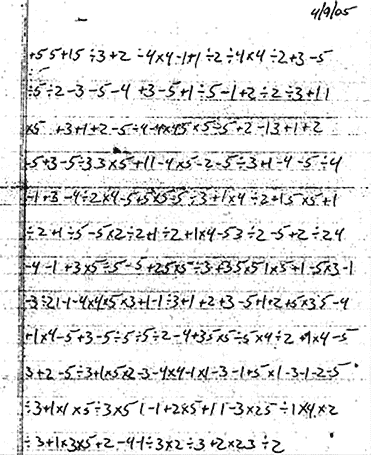 4/9/05
+55+15÷3+2÷4×4-1+1÷2÷4×4÷2+3-5
÷5÷2-3-5-4+3-5+1÷5-1+2÷2÷3+11
×5+3+1+2-5÷4-4×45×5÷5+2-13+1+2
-5+3-5÷33×5+11-4×5-2-5÷3+1-4-5÷4
-1+3-4÷2×4-5+5×5÷5÷3+1×4÷2+15×5+1
÷2+1÷5-5×2÷2+1÷2+1×4-53÷2-5+2÷24
-4-1+3×5÷5-5+25×5÷3+35×51×5+1-5×3-1
-3÷21-1-4×4×5×3+1-1÷3+1+2+3-5+1+2+5×35-4
+1×4-5+3-5÷5÷5÷2-4+35×5÷5×4÷2+1×4-5
3+2-5÷3+1×5×2-3-4×4-1×1-3-1+5×1-3-1-2-5
÷3+1×1×5÷3×51-1+2×5+11-3×25÷1×4×2
÷3+1×3×5+2-4-1÷3×2÷3+2×23÷2